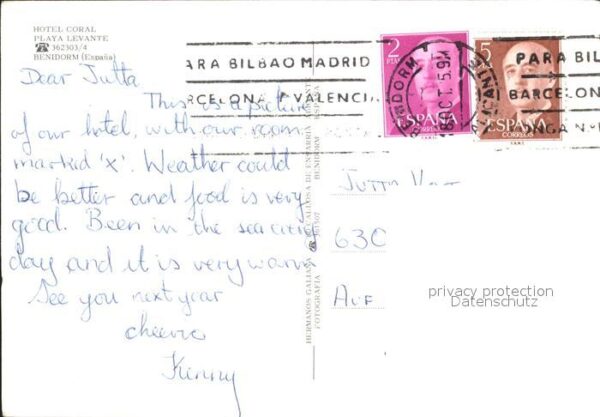 HOTEL CORAL
PLAYA LEVANTE
☎ 362303/4
BENIDORM (España)
Dear Jutta,
This is a picture
of our hotel, with our room
marked 'x'. Weather could
be better and food is very
good. Been in the sea every
day and it is very warm
See you next year
cheerio
Kenny
PARA BILBAO MADRID
BARCELONA Y VALENCIA
BENIDORM
ALICANTE
18 OCT. 5.9M
PARA BIL
BARCELON
2
PTAS
ESPAÑA
CORREOS
5
ESPAÑA
CORREOS
HERMANOS GALIANA
FOTOGRAFIA
BENIDORM
JUTTA
630
AUF
privacy protection
Datenschutz